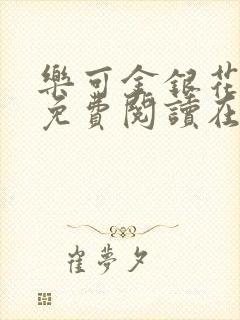 樂可金銀花
免費閱讀在
崔夢夕